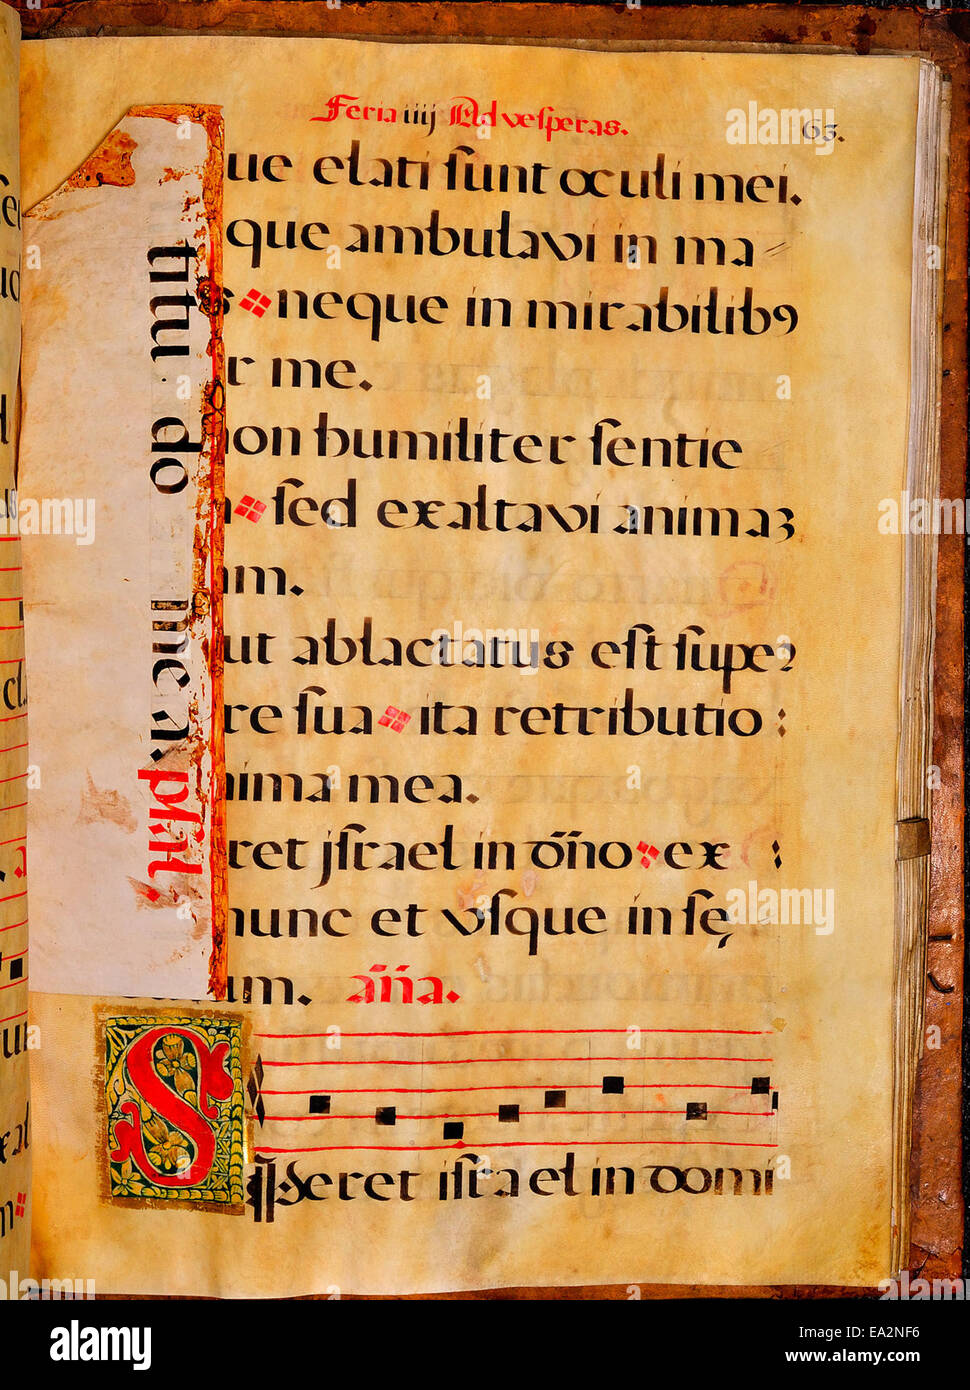 Feria iiij Ad vesperas.
63.
ue elati sunt oculi mei.
que ambulavi in ma
s neque in mirabilibꝰ
r me.
on humiliter sentie
sed exaltavi animaꝫ
am.
ut ablactatus est super
re sua ita retributio
nima mea.
ret jsrael in dn̄o ex
nunc et vsque in sę
um. an̄a.
Speret israel in domi
titu do mea. psal.
alamy
alamy
Image ID: EA2NF6
www.alamy.com